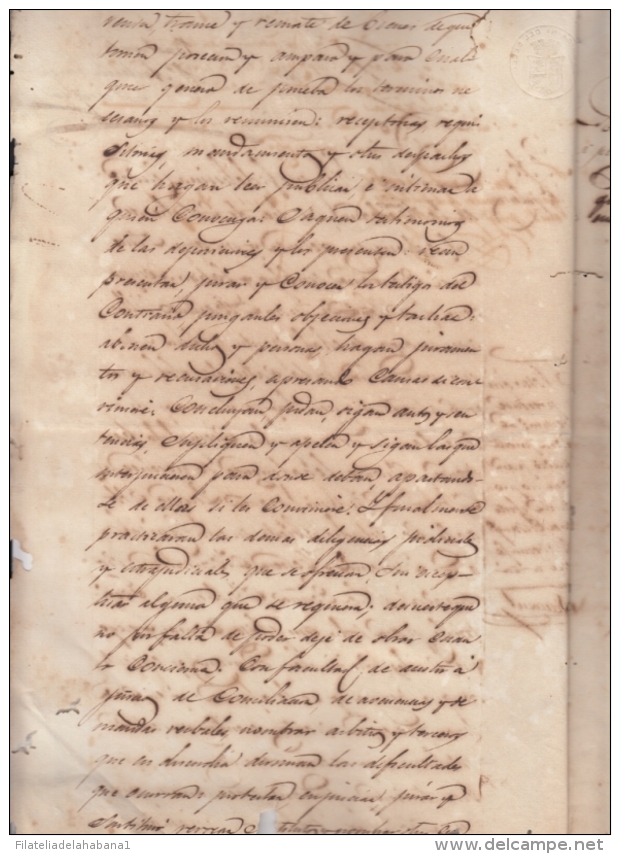 venta, trance y remate de bienes de que
tomen posecion y amparo y para cuales
quier genero de prueba los terminos ne
sesarios y los renuncien: receptorias requi
sitorias, mandamientos y otros despachos
que hagan leer publicar e intimar á
quien convenga: Saquen testimonios
de las deposiciones y los presenten: vean
presentar, jurar y conocer los testigos del
contrario ponganles objeciones y tachas:
abonen dichos y personas, hagan juramen
tos y recusaciones, apresando causas si con
viniere: Concluyan, pidan, oigan autos y sen
tencias, supliquen y apelen y sigan las que
interpusieren para donde deban apartando
se de ellas si les conviniere. Y finalmente
practicaran las demas diligencias judiciales
y extrajudiciales que se ofrezcan, sin excep-
tuar alguna que se requiera; de suerte que
no por falta de poder deje de obrar cuan
to convenga. Con facultad de asistir á
juicios de Conciliacion de avenencias y de
mandas verbales nombrar arbitros y terceros
que en discordia diriman las dificultades
que ocurran: protestar enjuiciar, jurar y
substituir, revocar
FilateliadelaHabana1
www.delcampe.net